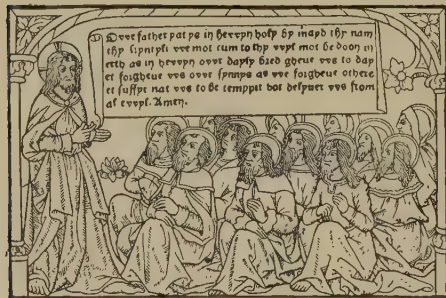 Owre father þat ys in hevvyn holy by mayd thy nam
thy kingdom vvs mot cum to thy vvyl mot be doon in
erth as in hevvyn ovvr dayly bred gheue vvs to day
et forgheue vvs ovvr synnys as vve forgheue othere
et suffyr nat vvs to be temppit bot delyuer vvs from
al evvyl. Amen.